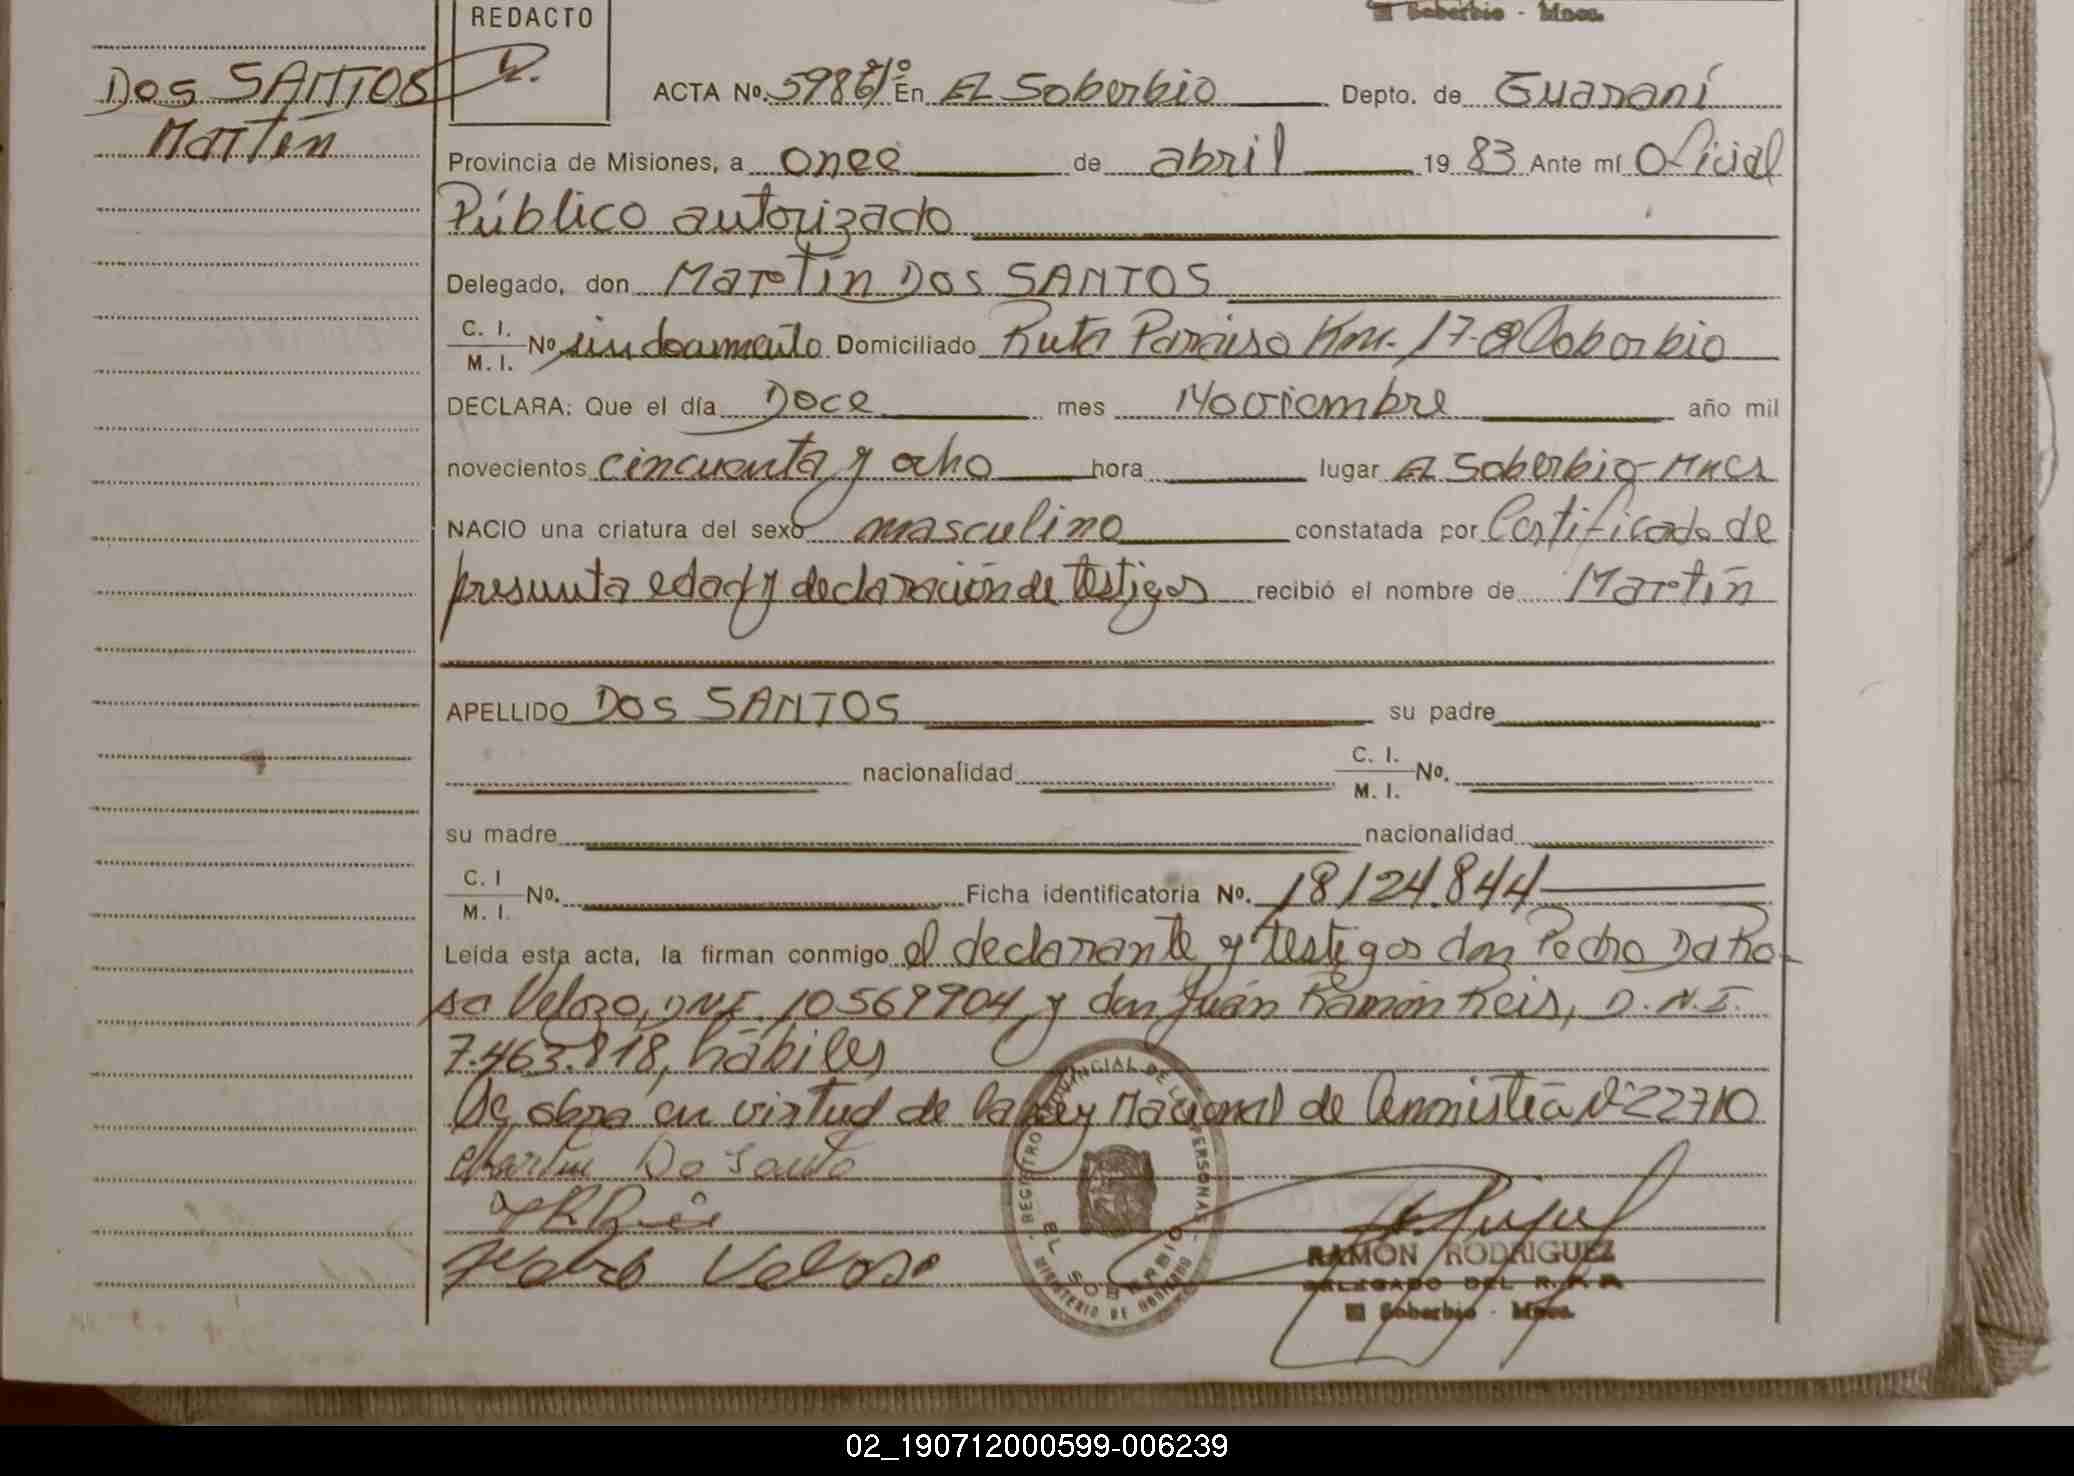 REDACTO
El Soberbio - Mnes.
DOS SANTOS
Martín
ACTA No. 598 6/º En El Soberbio Depto. de Guaraní
Provincia de Misiones, a once de abril 1983 Ante mí Oficial
Público autorizado
Delegado, don Martín DOS SANTOS
C. I. M. I. No sin documento Domiciliado Ruta Paraiso Km. 17-El Soberbio
DECLARA: Que el día Doce mes Noviembre año mil
novecientos cincuenta y ocho hora lugar El Soberbio-Mnes
NACIO una criatura del sexo masculino constatada por Certificado de
presunta edad y declaración de testigos recibió el nombre de Martín
APELLIDO DOS SANTOS su padre
nacionalidad C. I. M. I. No.
su madre nacionalidad
C. I M. I. No. Ficha identificatoria No. 18124.844
Leída esta acta, la firman conmigo el declarante y testigos don Pedro Da Ro-
sa Velozo, DNI. 10569904 y don Juán Ramón Reis, D.N.I.
7.463.818, hábiles
Se obra en virtud de la Ley Nacional de Amnistía Nº 22710
Martin Do Santo
Pedro Veloso
REGISTRO PROVINCIAL DE LAS PERSONAS
EL SOBERBIO
MINISTERIO DE GOBIERNO
RAMÓN RODRIGUEZ
DELEGADO DEL R. P. P.
El Soberbio - Mnes.
02_190712000599-006239